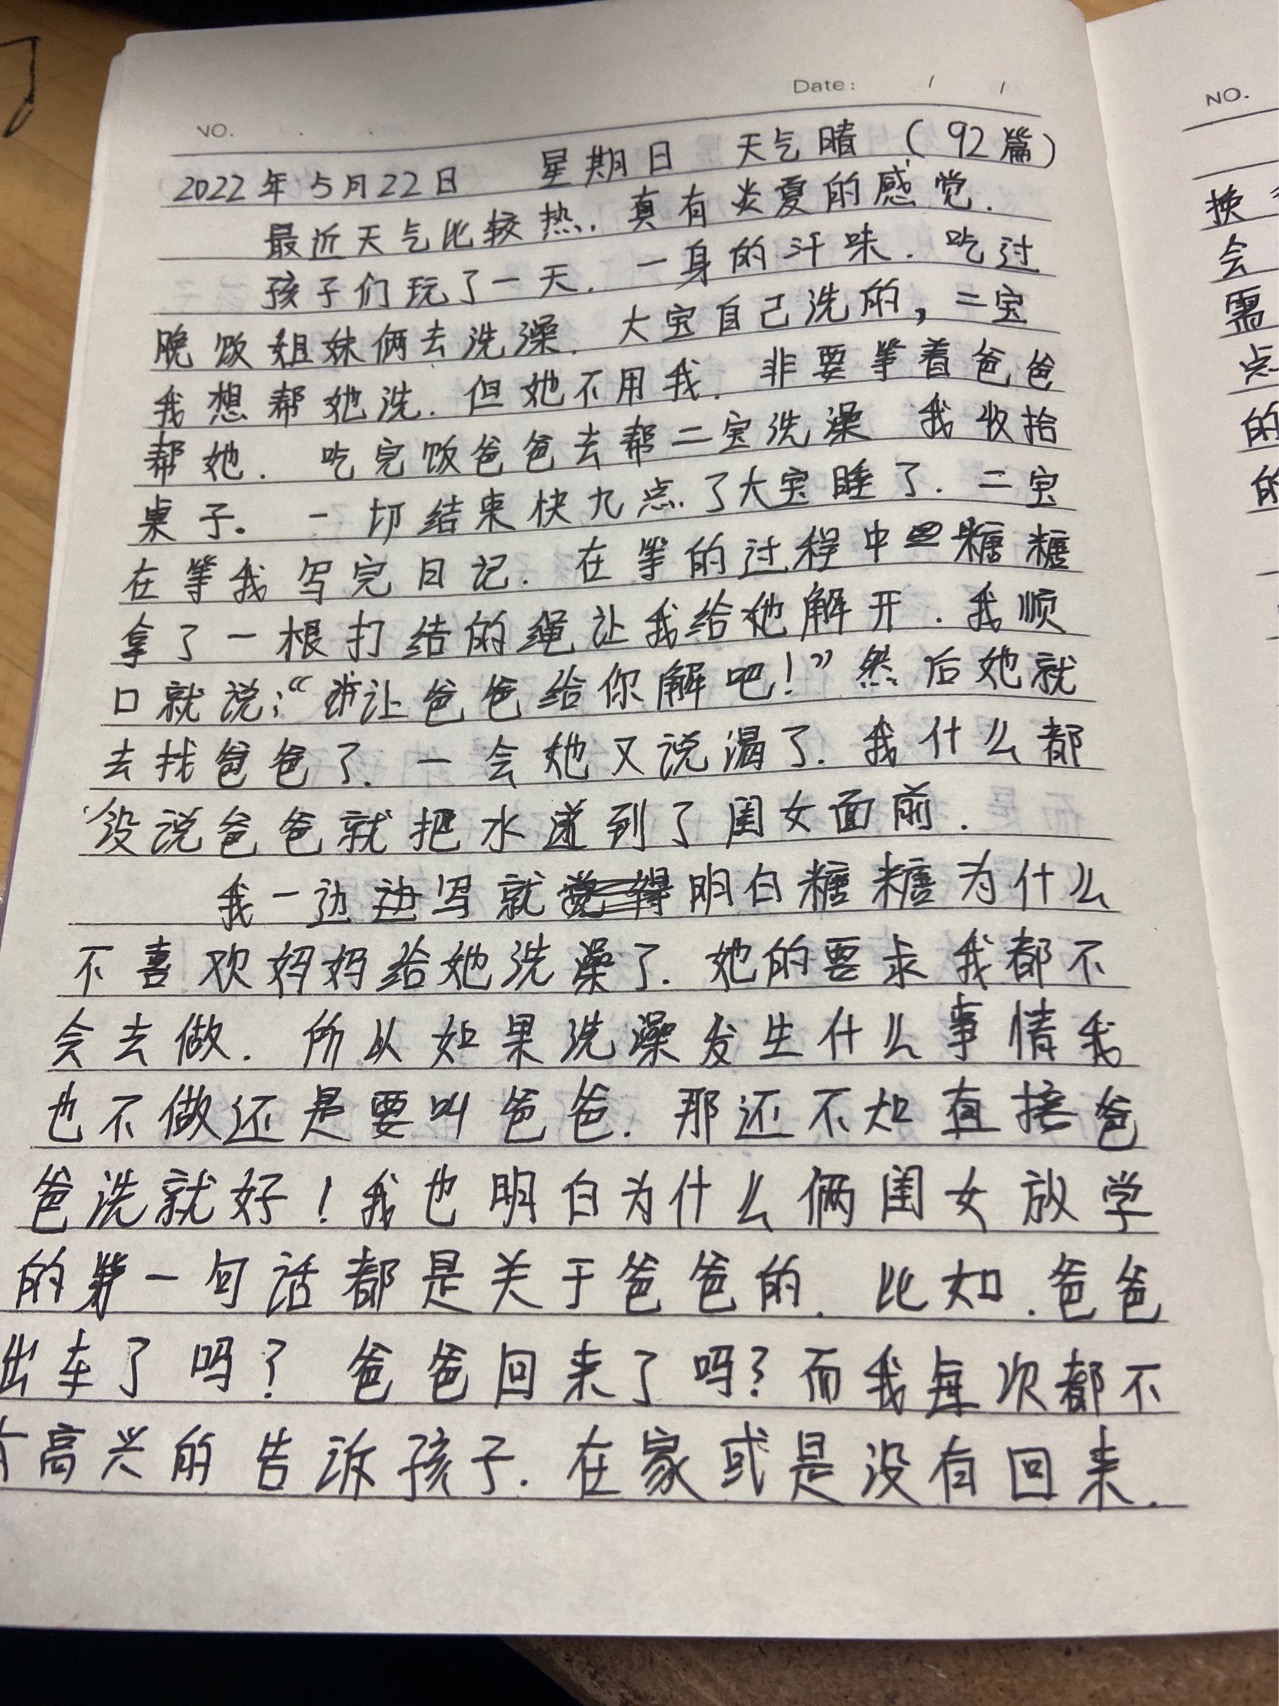 Date: / /
NO.
2022年5月22日 星期日 天气晴 (92篇)
最近天气比较热.真有炎夏的感觉.
孩子们玩了一天.一身的汗味.吃过
晚饭姐妹俩去洗澡.大宝自己洗的,二宝
我想帮她洗.但她不用我.非要等着爸爸
帮她.吃完饭爸爸去帮二宝洗澡 我收拾
桌子。一切结束快九点了大宝睡了.二宝
在等我写完日记.在等的过程中糖糖
拿了一根打结的绳让我给她解开.我顺
口就说:“让爸爸给你解吧!”然后她就
去找爸爸了.一会她又说渴了.我什么都
没说爸爸就把水递到了闺女面前.
我一边边写就明白糖糖为什么
不喜欢妈妈给她洗澡了.她的要求我都不
会去做.所以如果洗澡发生什么事情我
也不做还是要叫爸爸.那还不如直接爸
爸洗就好!我也明白为什么俩闺女放学
的第一句话都是关于爸爸的.比如.爸爸
出车了吗?爸爸回来了吗?而我每次都不
高兴的告诉孩子.在家或是没有回来.
NO.
换
会
需
点
的
的